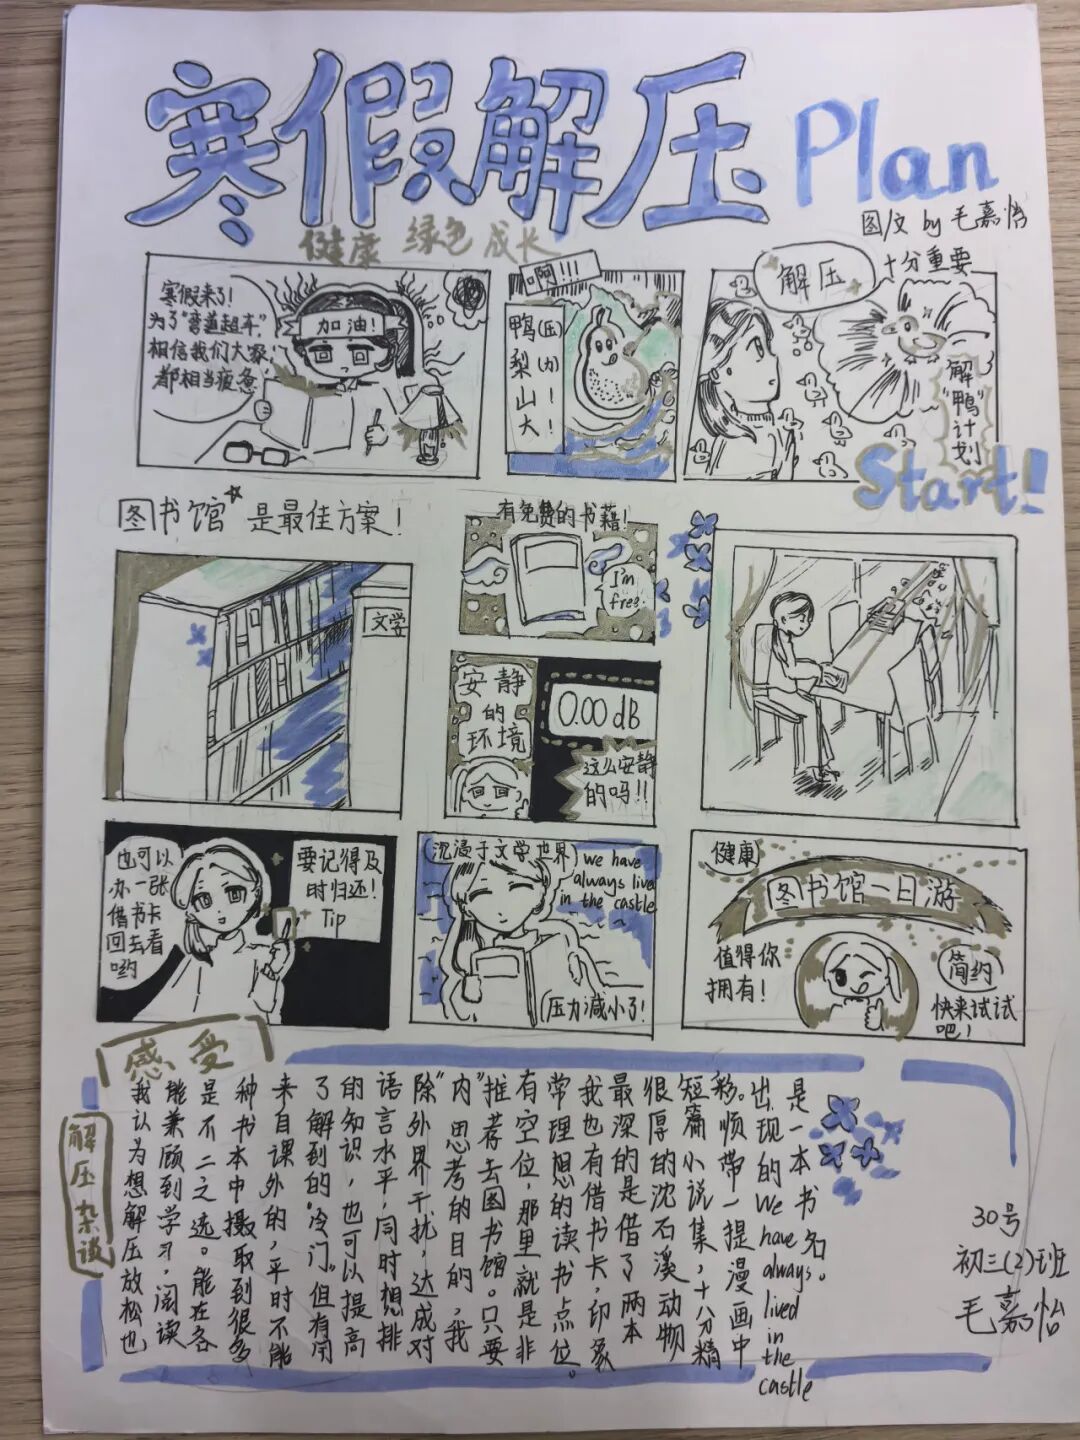 寒假解压Plan
图/文 by 毛嘉怡
健康 绿色 成长
寒假来了!
为了“弯道超车”,
相信我们大家
都相当疲惫
加油!
啊!!!
鸭(压)
梨(力)
山!
大!
解压
十分重要
解
“鸭”
计
划
Start!
图书馆是最佳方案!
文学
有免费的书籍!
I'm
free.
安静
的
环境
0.00 dB
这么安静
的吗!!
也可以
办一张
借书卡
回去看
哟
要记得及
时归还!
Tip
沉浸于文学世界
we have
always lived
in the castle
压力减小了!
健康
图书馆一日游
值得你
拥有!
简约
快来试试
吧!
感受
解压杂谈
我认为想解压放松也
能兼顾到学习,阅读
是不二之选。能在各
种书本中摄取到很多
来自课外的,平时不能
了解到的“冷门”但有用
的知识,也可以提高
语言水平,同时想排
除外界干扰,达成对
“内”思考的目的,我
推荐去图书馆。只要
有空位,那里就是非
常理想的读书点位。
我也有借书卡,印象
最深的是借了两本
很厚的沈石溪动物
短篇小说集,十分精
彩。顺带一提漫画中
出现的We have always lived in the castle
是一本书名。
30号
初三(2)班
毛嘉怡